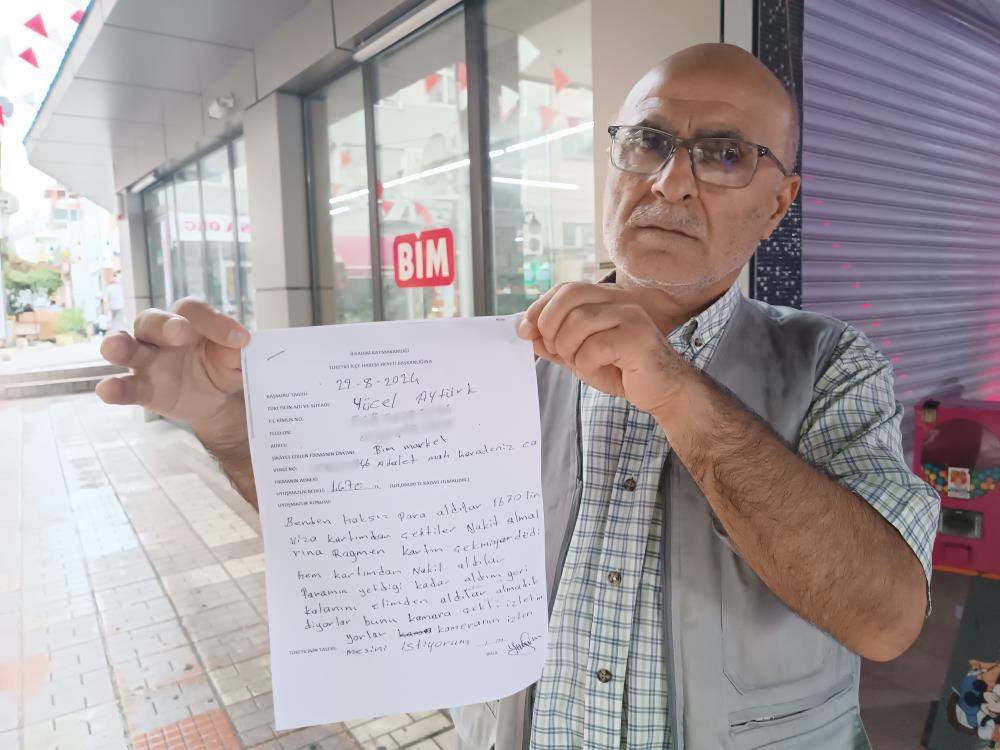 BİM
İLKADIM KAYMAKAMLIĞI
TÜKETİCİ İLÇE HAKEM HEYETİ BAŞKANLIĞINA
BAŞVURU TARİHİ: 29-8-2024
TÜKETİCİN ADI VE SOYADI: Yücel Aytürk
T.C KİMLİK NO:
TELEFON:
ADRES:
ŞİKAYET EDİLEN FİRMANIN ÜNVANI: Bim market
VERGİ NO:
FİRMANIN ADRESİ: 46 Adalet mah karadeniz ca
UYUŞMAZLIK BEDELİ: 1.670 TL (104.000,00 TL KADAR OLMALIDIR.)
UYUŞMAZLIK KONUSU:
Benden haksız para aldılar 1670 lin
viza kartımdan çektiler Nakit almal
rına Rağmen kartın çekmiyor dedi
hem kartımdan Nakit aldılar
Paramın yettiği kadar aldım geri
kalanını elimden aldılar almadık
diyorlar bunu kamara çekti izletm
yorlar kameranın izlen
TÜKETİCİNİN TALEBİ: mesini istiyorum
İMZA